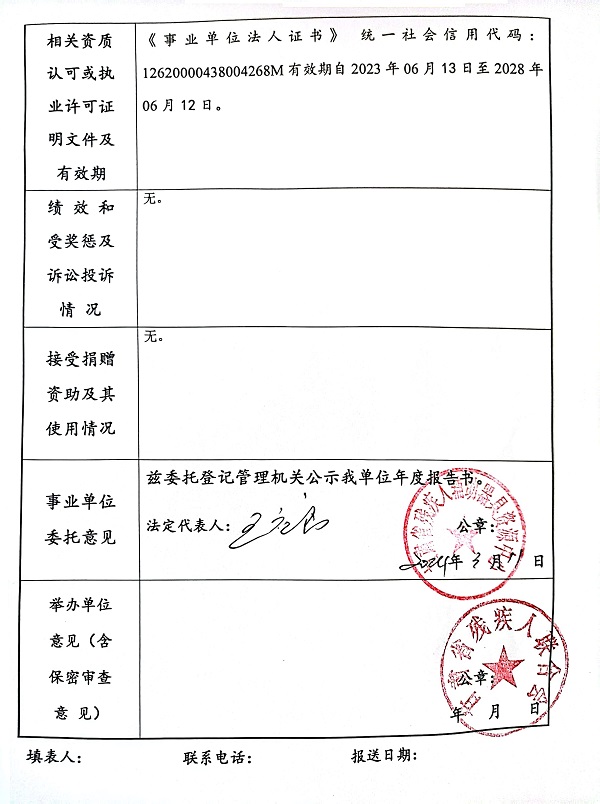 相关资质
认可或执
业许可证
明文件及
有效期
《事业单位法人证书》 统一社会信用代码：
12620000438004268M有效期自2023年06月13日至2028年
06月12日。
绩 效 和
受奖惩及
诉讼投诉
情 况
无。
接受捐赠
资助及其
使用情况
无。
事业单位
委托意见
兹委托登记管理机关公示我单位年度报告书。
法定代表人：
公章：
2024年3月 日
举办单位
意见（含
保密审查
意 见）
甘肃省残疾人联合会
公章：
年 月 日
填表人：
联系电话：
报送日期：